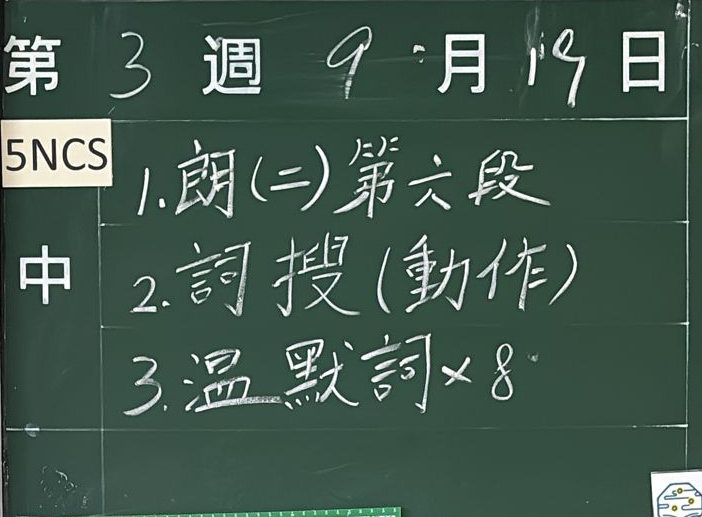 第 3 週 9 月 19 日
5NCS
1.朗(二)第六段
中
2.詞搜(動作)
3.温默詞×8